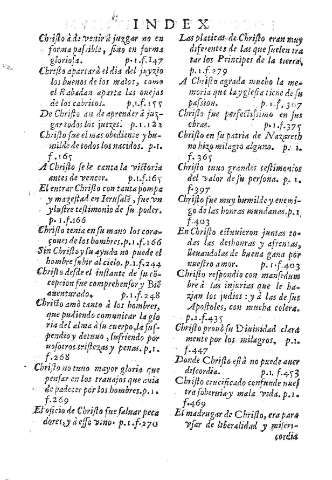 INDEX
Christo à de venir à juzgar no en
forma passible, sino en forma
gloriosa. p.1.f.147
Christo apartarà el dia del juyzio
los buenos de los malos, como
el Rabadan aparta las ouejas
de los cabritos. p.1.f.155
De Christo an de aprender à juz-
gar todos los juezes. p.1.121
Christo fue el mas obediente y hu-
milde de todos los nacidos. p.1.
f.165
A Christo se le canta la victoria
antes de vencer. p.1.f.165
El entrar Christo con tanta pompa
y magestad en Ierusalē, fue vn
ylustre testimonio de su poder.
p.1.f.166
Christo tenia en su mano los cora-
çones de los hombres. p.1.f.166
Sin Christo y su ayuda no puede el
hombre subir al cielo. p.1.f.244
Christo desde el instante de su cō-
cepcion fue comprehensor y Biē
auenturado. p.1.f.248
Christo amò tanto à los hombres,
que pudiendo comunicar la glo
ria del alma à su cuerpo, la sus-
pendio y detuuo, sufriendo por
nosotros tristezas y penas. p.1.
f.268
Christo no tuuo mayor gloria que
pensar en los trauajos que auia
de padecer por los hombres. p.1.
f.269
El oficio de Christo fue saluar peca
dores, y à esso vino. p.1.f.270
Las platicas de Christo eran muy
diferentes de las que suelen tra
tar los Principes de la tierra,
p.1.f.279
A Christo agrada mucho la me-
moria que la yglesia tiene de su
passion. p.1.f.307
Christo fue perfectissimo en sus
obras. p.1.f.375
Christo en su patria de Nazareth
no hizo milagro alguno. p.1.
f.365
Christo tuuo grandes testimonios
del valor de su persona. p.1.
f.397
Christo fue muy humilde y enemi-
go de las honras mundanas. p.1.
f.403
En Christo estuuieron juntas to-
das las deshonras y afrentas,
lleuandolas de buena gana por
nuestro amor. p.1.f.403
Christo respondio con mansedum
bre à las injurias que le ha-
zian los judios: y à las de sus
Apostoles, con mucha colera.
p.1.f.435
Christo prouò su Diuinidad clara
mente por los milagros. p.1.
f.447
Donde Christo està no puede auer
discordia. p.1.f.453
Christo crucificado confunde nuest
tra soberuia y mala vida. p.1.
f.469
El madrugar de Christo, era para
vsar de liberalidad y miseri-
cordia